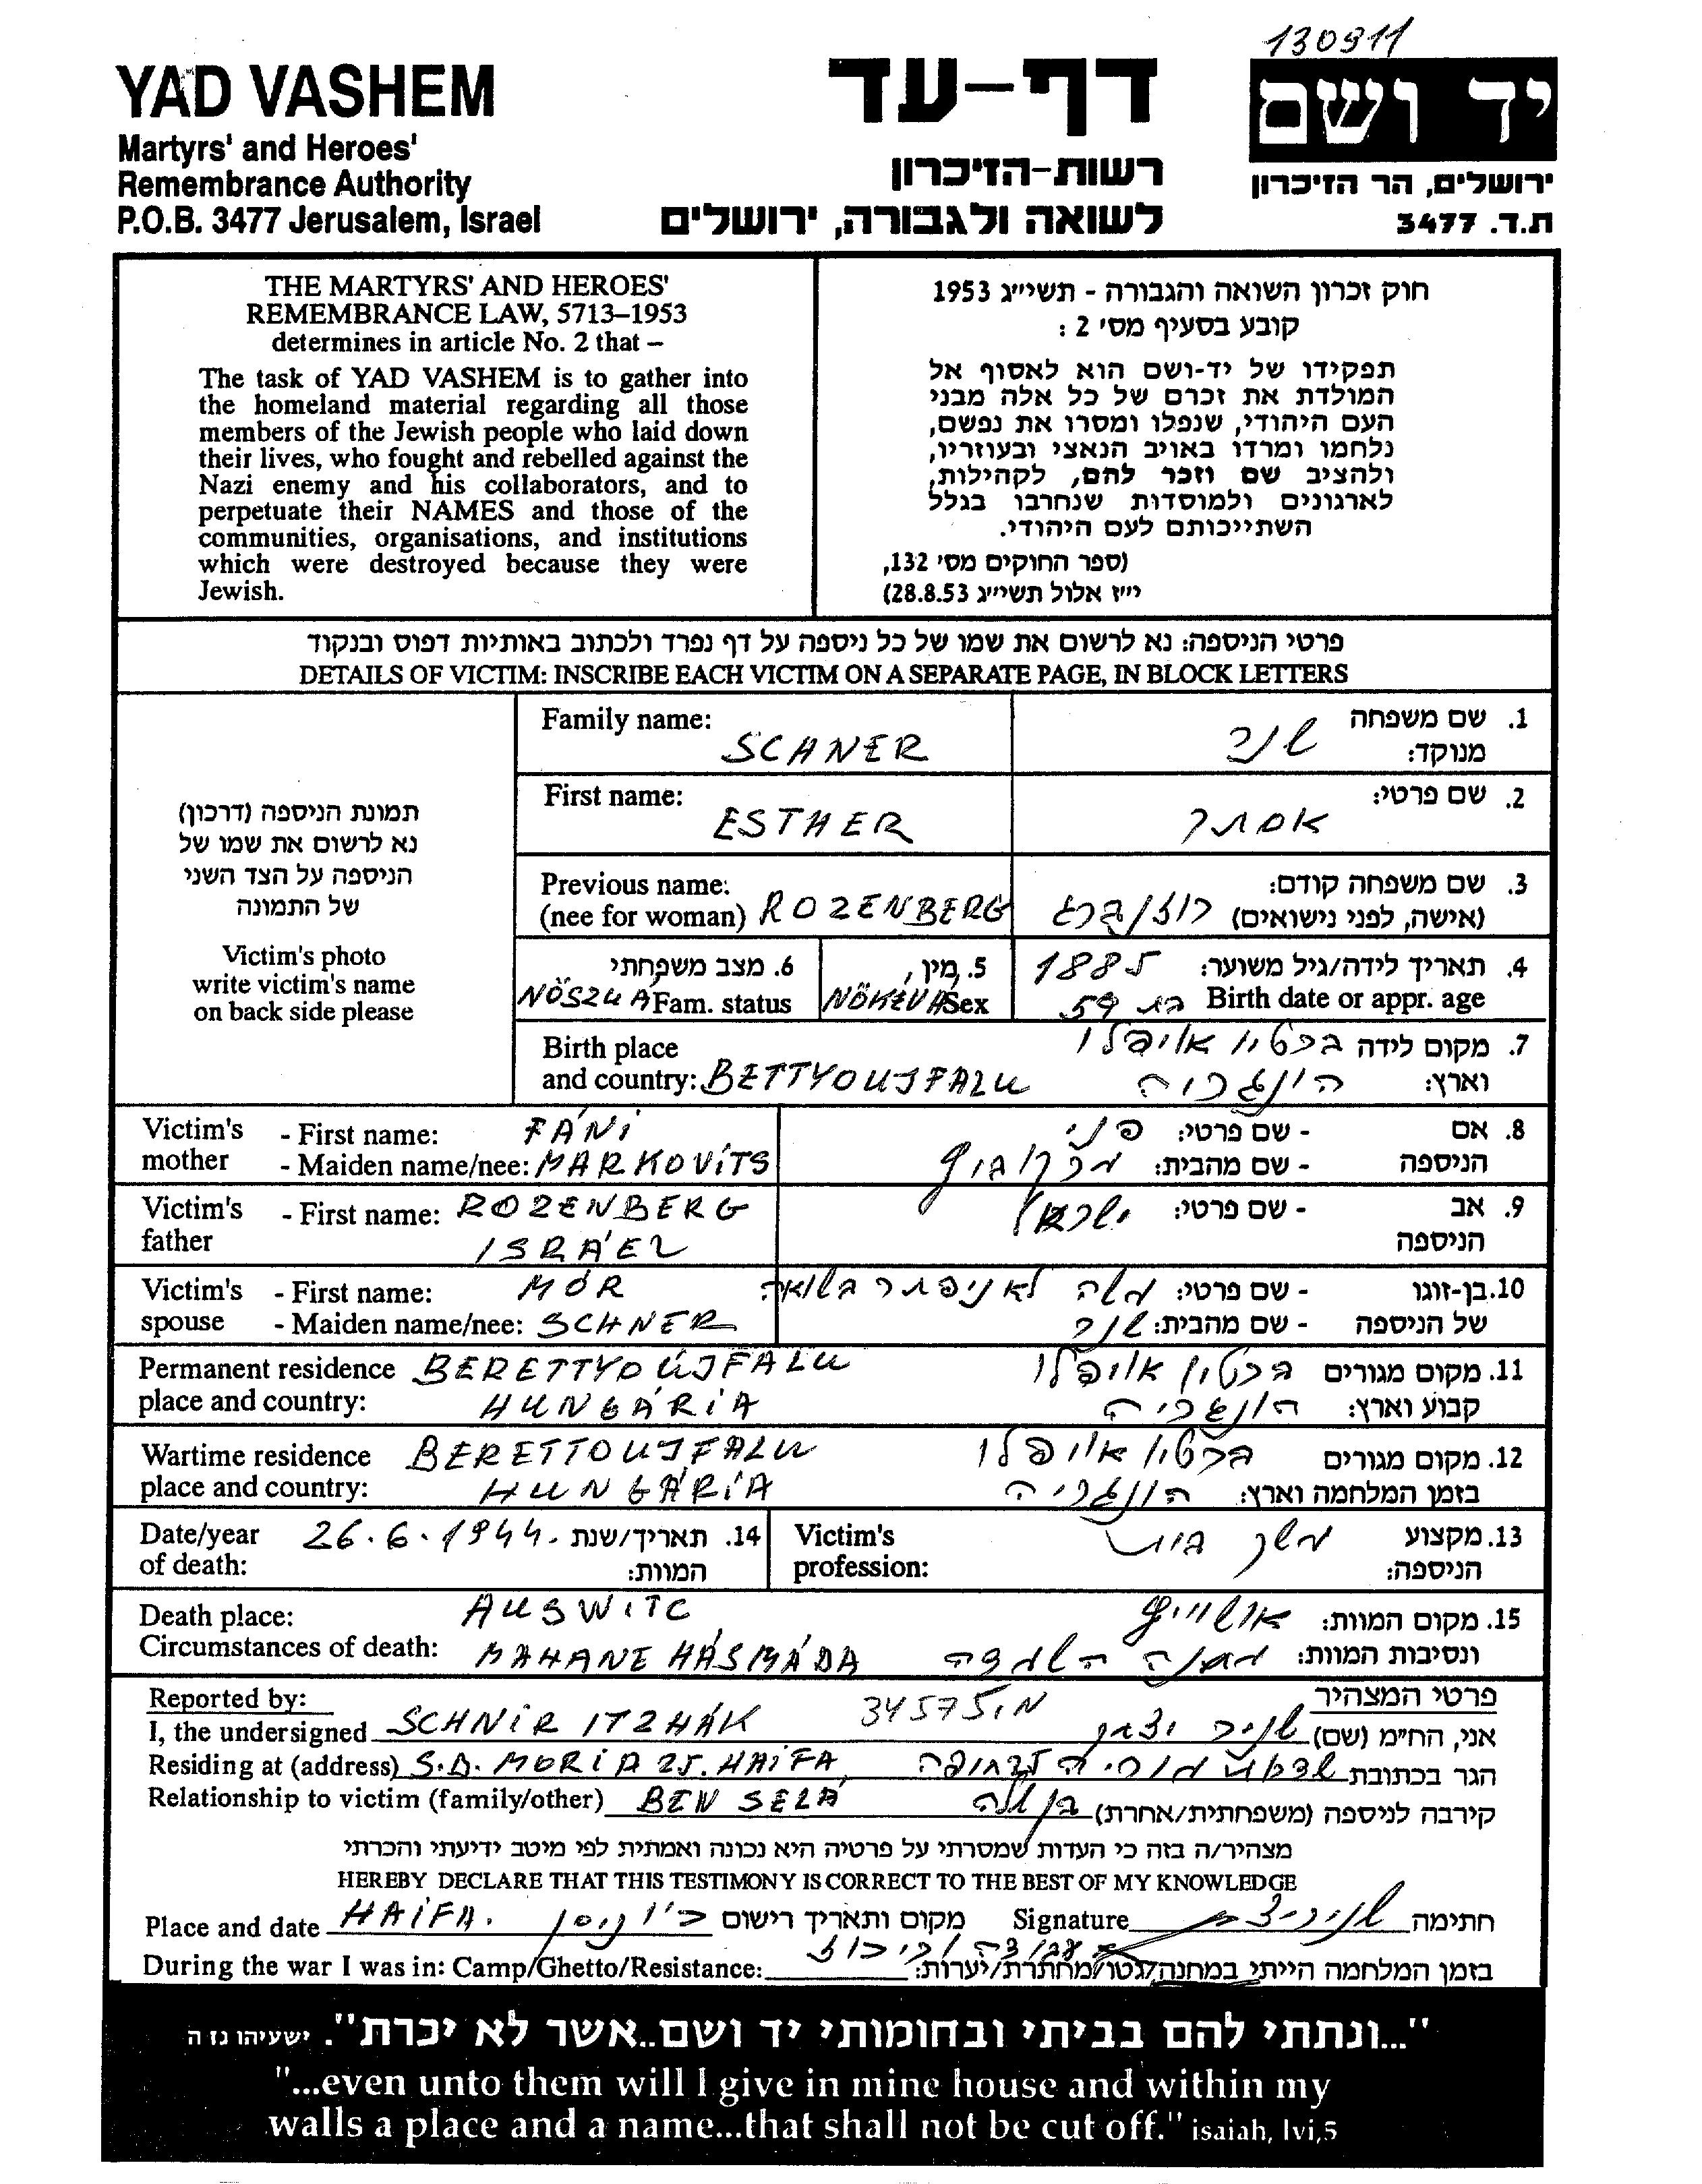 130911
YAD VASHEM
Martyrs' and Heroes'
Remembrance Authority
P.O.B. 3477 Jerusalem, Israel
דף-עד
רשות-הזיכרון
לשואה ולגבורה, ירושלים
יד ושם
ירושלים, הר הזיכרון
ת.ד. 3477
THE MARTYRS' AND HEROES'
REMEMBRANCE LAW, 5713–1953
determines in article No. 2 that –
The task of YAD VASHEM is to gather into
the homeland material regarding all those
members of the Jewish people who laid down
their lives, who fought and rebelled against the
Nazi enemy and his collaborators, and to
perpetuate their NAMES and those of the
communities, organisations, and institutions
which were destroyed because they were
Jewish.
חוק זכרון השואה והגבורה - תשי״ג 1953
קובע בסעיף מס׳ 2 :
תפקידו של יד-ושם הוא לאסוף אל
המולדת את זכרם של כל אלה מבני
העם היהודי, שנפלו ומסרו את נפשם,
נלחמו ומרדו באויב הנאצי ובעוזריו,
ולהציב שם וזכר להם, לקהילות,
לארגונים ולמוסדות שנחרבו בגלל
השתייכותם לעם היהודי.
(ספר החוקים מס׳ 132,
י״ז אלול תשי״ג 28.8.53)
פרטי הניספה: נא לרשום את שמו של כל ניספה על דף נפרד ולכתוב באותיות דפוס ובנקוד
DETAILS OF VICTIM: INSCRIBE EACH VICTIM ON A SEPARATE PAGE, IN BLOCK LETTERS
תמונת הניספה (דרכון)
נא לרשום את שמו של
הניספה על הצד השני
של התמונה
Victim's photo
write victim's name
on back side please
Family name: 1. שם משפחה
SCHNER שנר מנוקד:
First name: 2. שם פרטי:
ESTHER אסתר
Previous name: 3. שם משפחה קודם:
(nee for woman) ROZENBERG רוזנברג (אישה, לפני נישואים)
6. מצב משפחתי 5. מין 1885 4. תאריך לידה/גיל משוער:
NÖSZUA Fam. status Sex בת 59 Birth date or appr. age
Birth place ברטיו אויפלו 7. מקום לידה
and country: BETTYOUJFALU הונגריה וארץ:
Victim's - First name: FÁNI פני - שם פרטי: 8. אם
mother - Maiden name/nee: MARKOVITS מרקוביץ - שם מהבית: הניספה
Victim's - First name: ROZENBERG ישראל - שם פרטי: 9. אב
father ISRÁEL הניספה
Victim's - First name: MÓR משה לא ניפטר בשואה - שם פרטי: 10. בן-זוגו
spouse - Maiden name/nee: SCHNER שנר - שם מהבית: של הניספה
Permanent residence BERETTYO ÚJFALU ברטיו אויפלו 11. מקום מגורים
place and country: HUNGÁRIA הונגריה קבוע וארץ:
Wartime residence BERETTOUJFALU ברטיו אויפלו 12. מקום מגורים
place and country: HUNGÁRIA הונגריה בזמן המלחמה וארץ:
Date/year 26.6.1944. 14. תאריך/שנת Victim's משק בית 13. מקצוע
of death: המוות: profession: הניספה:
Death place: AUSWITC אושוויץ 15. מקום המוות:
Circumstances of death: MAHANE HÁSMÁDA מחנה השמדה ונסיבות המוות:
Reported by: 34575 פרטי המצהיר
I, the undersigned SCHNIR ITZHÁK שניר יצחק אני, הח״מ (שם)
Residing at (address) S.D. MORIA 25. HAIFA הגר בכתובת
Relationship to victim (family/other) BEN SELÁ בן שלה קירבה לניספה (משפחתית/אחרת)
מצהיר/ה בזה כי העדות שמסרתי על פרטיה היא נכונה ואמתית לפי מיטב ידיעתי והכרתי
HEREBY DECLARE THAT THIS TESTIMONY IS CORRECT TO THE BEST OF MY KNOWLEDGE
Place and date HAIFA. מקום ותאריך רישום Signature חתימה
During the war I was in: Camp/Ghetto/Resistance: בזמן המלחמה הייתי במחנה/גטו/מחתרת/יערות:
"...ונתתי להם בביתי ובחומותי יד ושם..אשר לא יכרת". ישעיהו נו ה
"...even unto them will I give in mine house and within my
walls a place and a name...that shall not be cut off." isaiah, lvi,5